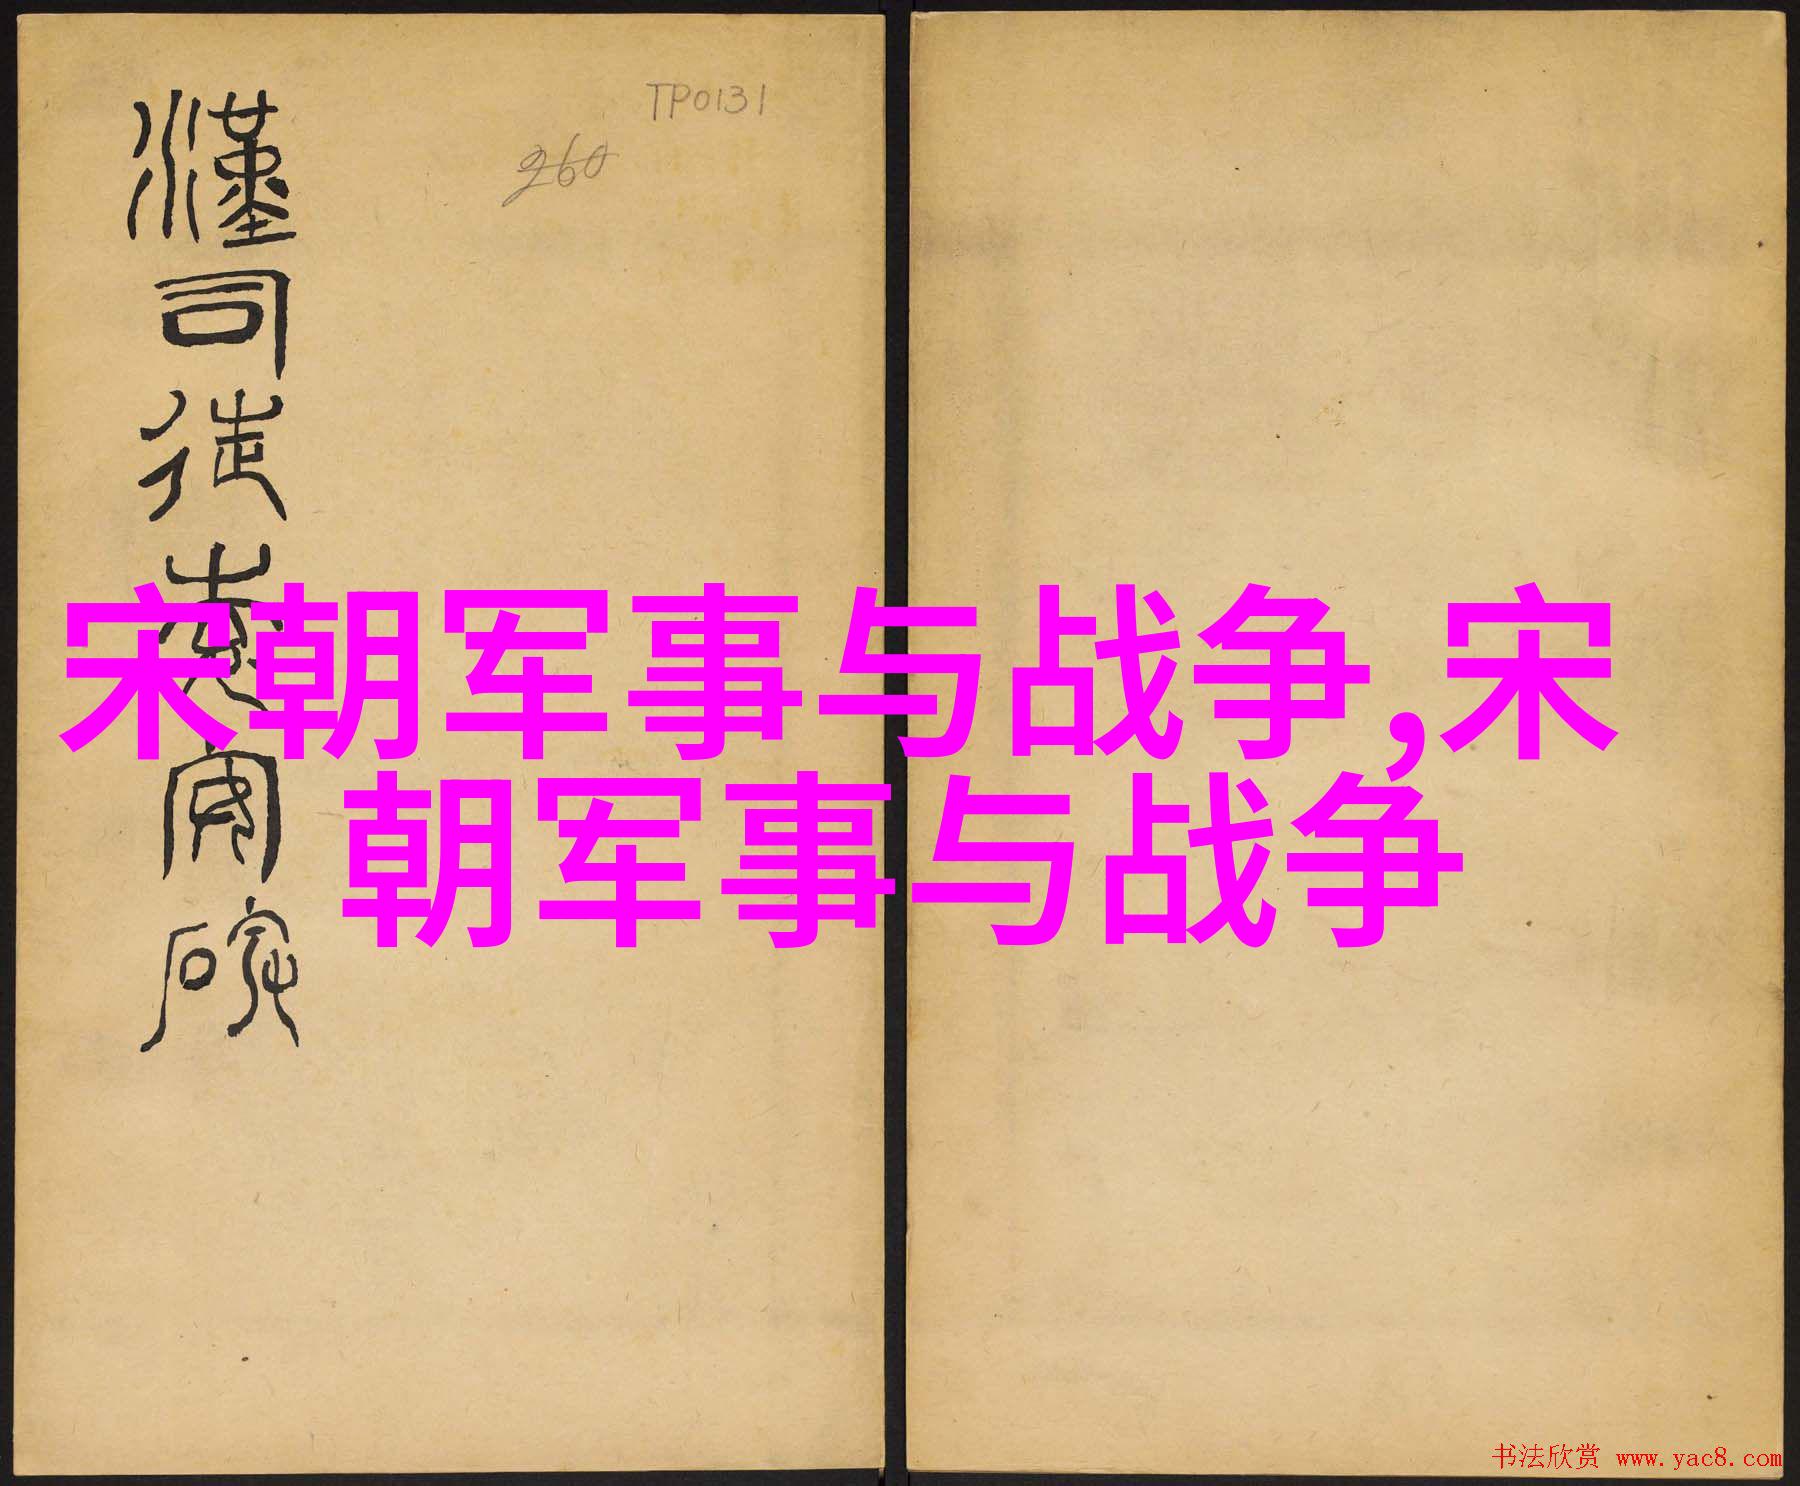 漢司徒袁安碑
TP0131
260
宋朝军事与战争,宋
朝军事与战争
书法欣赏 www.yac8.com